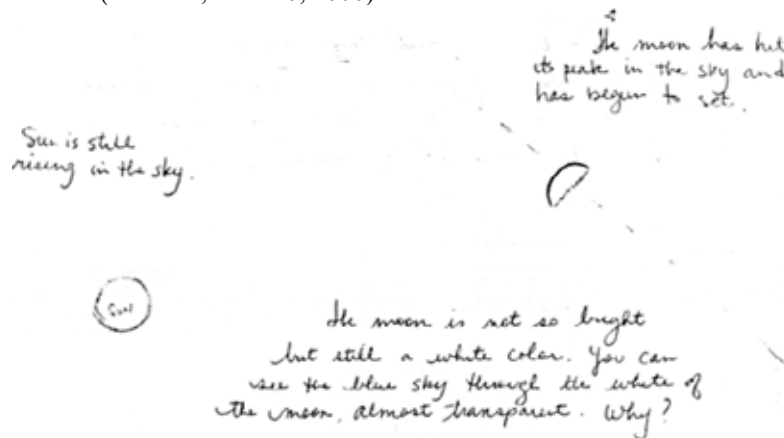 The moon has hit
its peak in the sky and
has begun to set.
Sun is still
rising in the sky.
Sun
The moon is not so bright
but still a white color. You can
see the blue sky through the white of
the moon, almost transparent. Why?